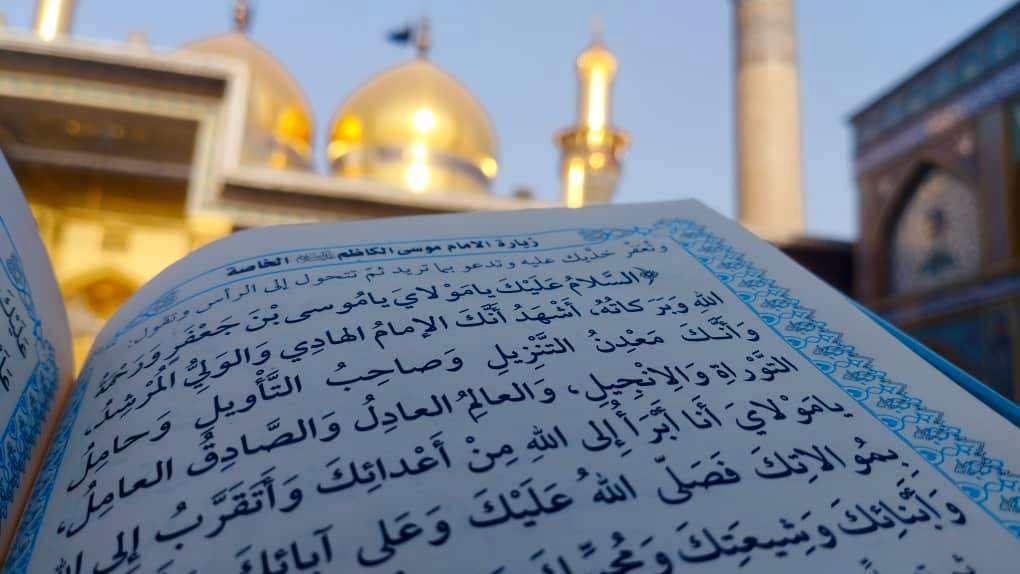 زيارة الامام موسى الكاظم الخاصة
وتعفر خديك عليه وتدعو بما تريد ثم تتحول إلى الرأس وتقول:
﴿السَّلامُ عَلَيْكَ يامَوْلايَ يامُوسى بْنَ جَعْفَرٍ وَرَحْمَةُ
اللهِ وَبَرَكاتُهُ، أَشْهَدُ أَنَّكَ الإمامُ الهادِي وَالوَلِيُّ المُرْشِدُ،
وَأَنَّكَ مَعْدِنُ التَّنْزِيلِ وَصاحِبُ التَّأْوِيلِ وَحامِلُ
التَّوْراةِ وَالإنْجِيلِ، وَالعالِمُ العادِلُ وَالصَّادِقُ العامِلُ،
يامَوْلايَ أَنا أَبْرَأُ إِلى اللهِ مِنْ أَعْدائِكَ وَأَتَقَرَّبُ إِلى اللهِ
بِمُوالاتِكَ فَصَلّى اللهُ عَلَيْكَ وَعَلى آبائِكَ
وَأَبْنائِكَ وَشِيعَتِكَ وَمُحِبِّيكَ